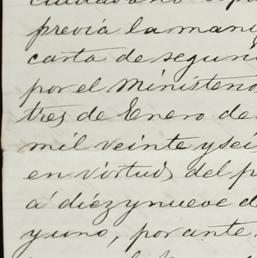 ciudadano
previa la mani
carta de seguri
por el Ministerio
tres de Enero de
mil veinte y sei
en virtud del p
á diez y nueve d
y uno, por ante